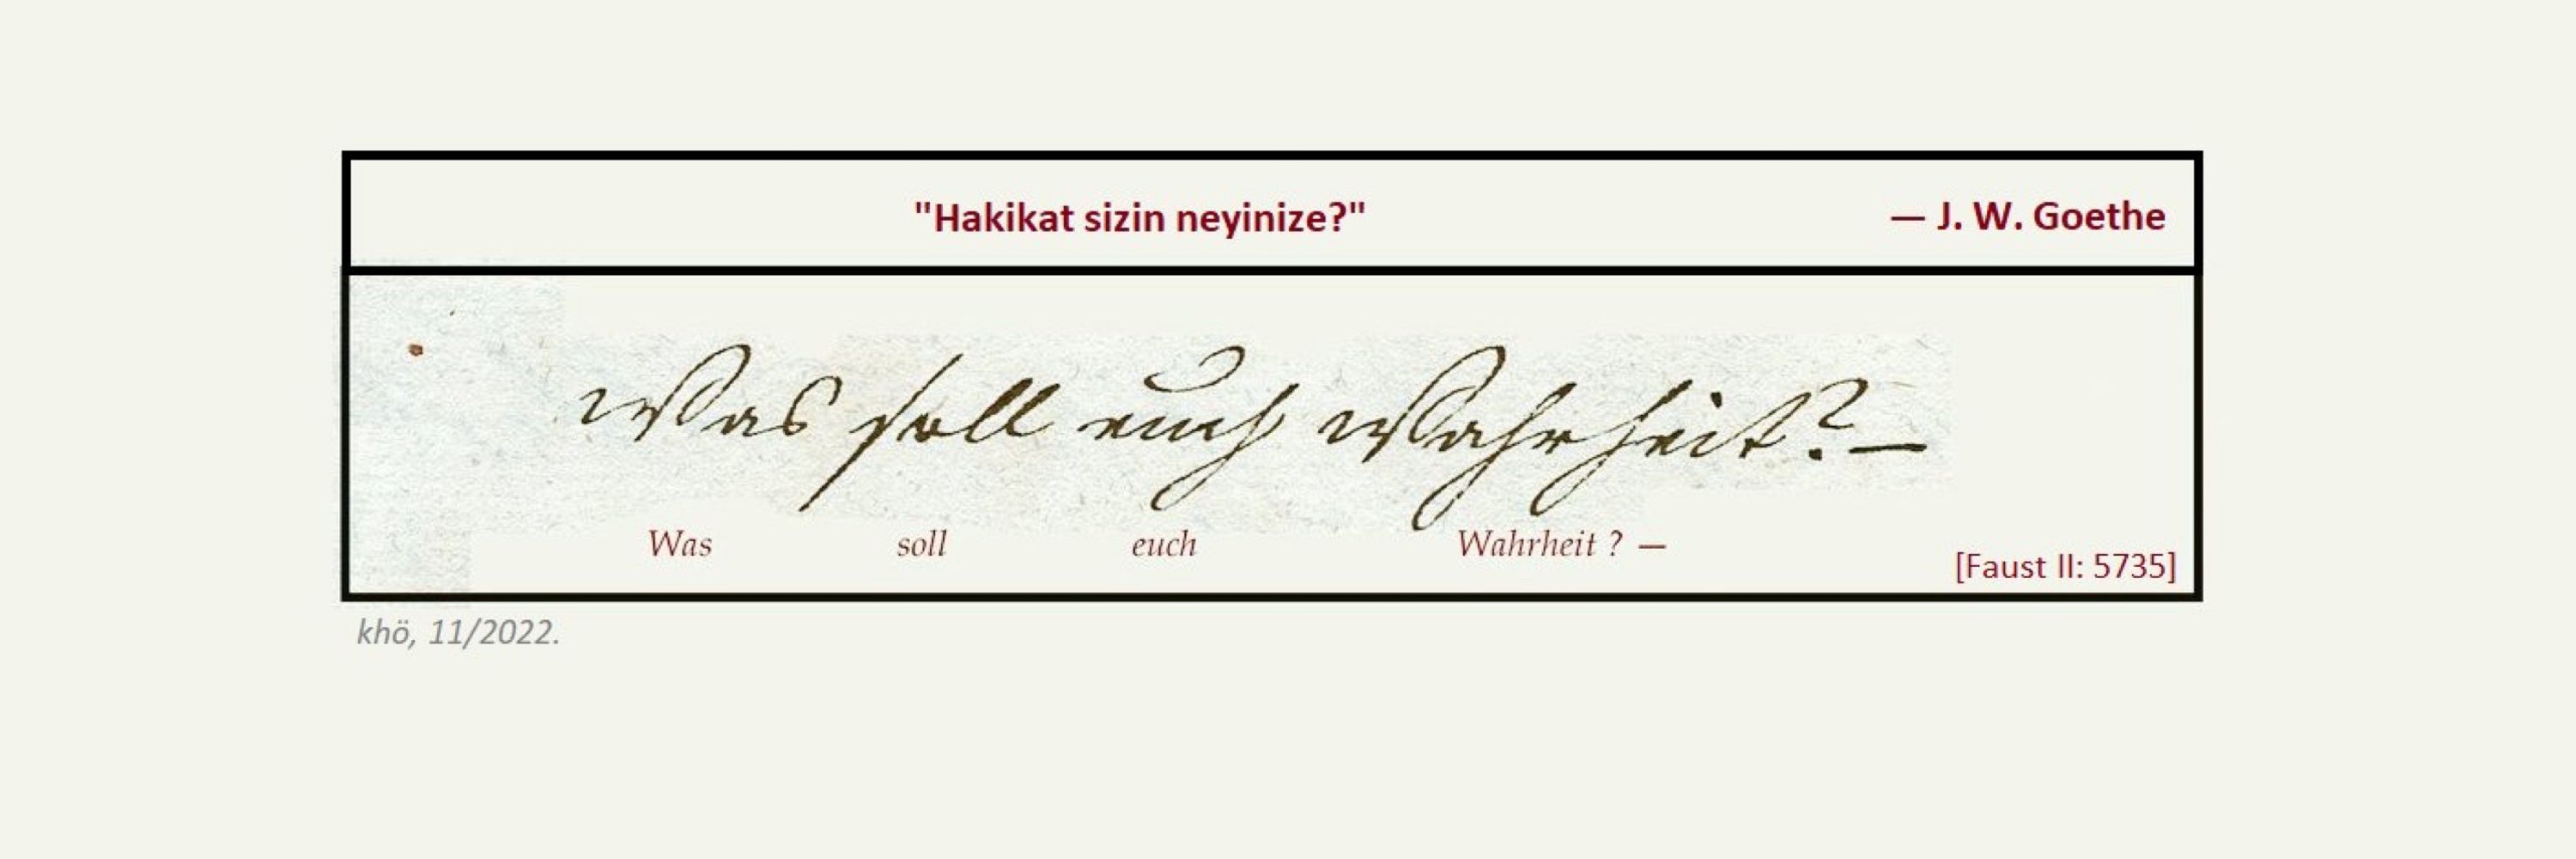 "Hakikat sizin neyinize?" — J. W. Goethe
Was soll euch Wahrheit? —
Was soll euch Wahrheit ? —
[Faust II: 5735]
khö, 11/2022.